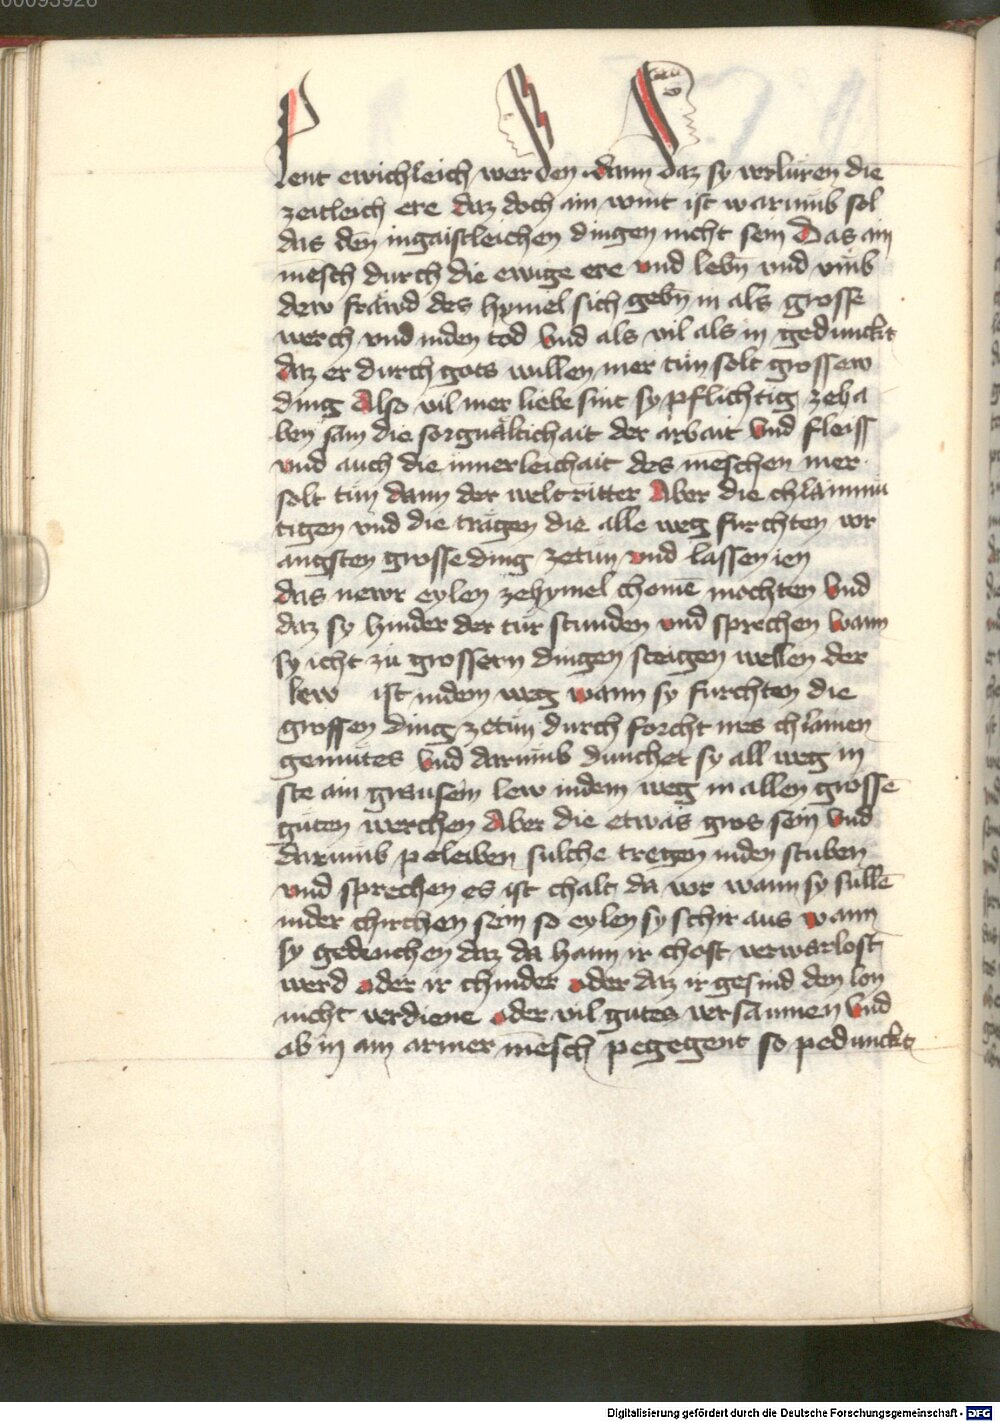 00093926
lent ewichleich werden dann daz sy verluren die
zeitleich ere daz doch ain wint ist warumb sol
das den ingaistleichen dingen nicht sein Das ain
mesch durch die ewige ere vnd lebn vnd vmb
dew frawd des hymel sich gebn in als grosse
werch vnd inden tod Vnd als vil als in gedunckt
daz er durch gots willen mer tun solt grossew
ding Also vil mer liebe sint sy pflichtig zeha
ben sam die sorgualtichait der arbait Vnd fleiss
vnd auch die innerleichait des meschen mer
solt tun dann der welt ritter Aber die chlainmu
tigen vnd die tragen die alle weg furchten vor
angsten grosse ding zetun vnd lassen ien
das newr eylen zehymel chome mochten Vnd
daz sy hinder der tur stunden vnd sprechen Wann
sy icht zu grossern dingen steigen wellen der
lew ist indem weg wann sy furchten die
grossen ding zetun durch forcht irs chlainen
gemutes Vnd darumb dunchet sy all weg in
ste ain grausein lew indem weg in allen grosse
guten werchen Aber die etwas gros sein Vnd
darumb peleiben sulche tregen inden stuben
vnd sprechen es ist chalt da vor wann sy sulle
inder chirchen sein so eylen sy schir aus wann
sy gedenchen daz da haim ir chost verwarlost
werd oder ir chinder oder daz ir gesind den lon
nicht verdiene oder vil gutes versaumen Vnd
ob in ain armer mesch pegegent so pedunckt
Digitalisierung gefördert durch die Deutsche Forschungsgemeinschaft - DFG